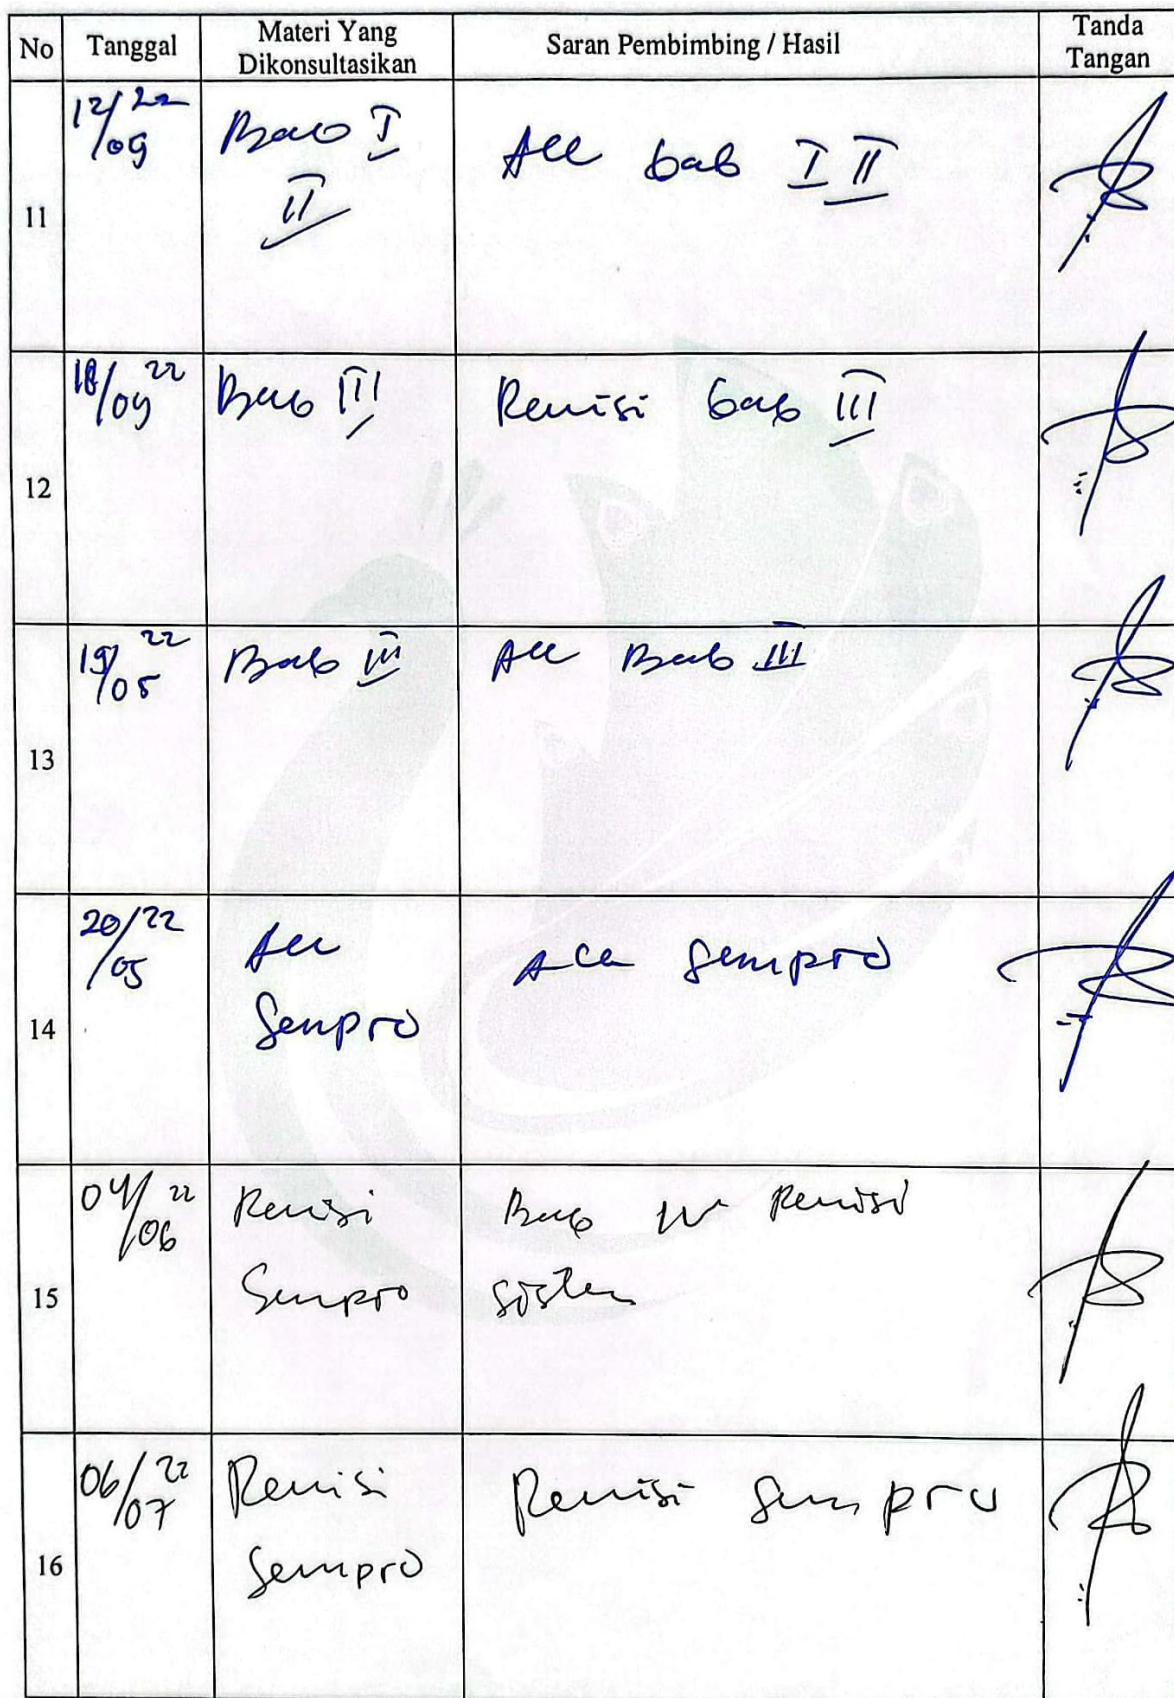 No Tanggal Materi Yang Dikonsultasikan Saran Pembimbing / Hasil Tanda Tangan
11 12/09 22 Bab I Acc bab I II
II
12 18/09 22 Bab III Revisi bab III
13 19/05 22 Bab III Acc Bab III
14 20/05 22 Acc Acc Sempro
Sempro
15 04/06 22 Revisi Bab Revisi
Sempro sistem
16 06/07 22 Revisi Revisi Sempro
Sempro